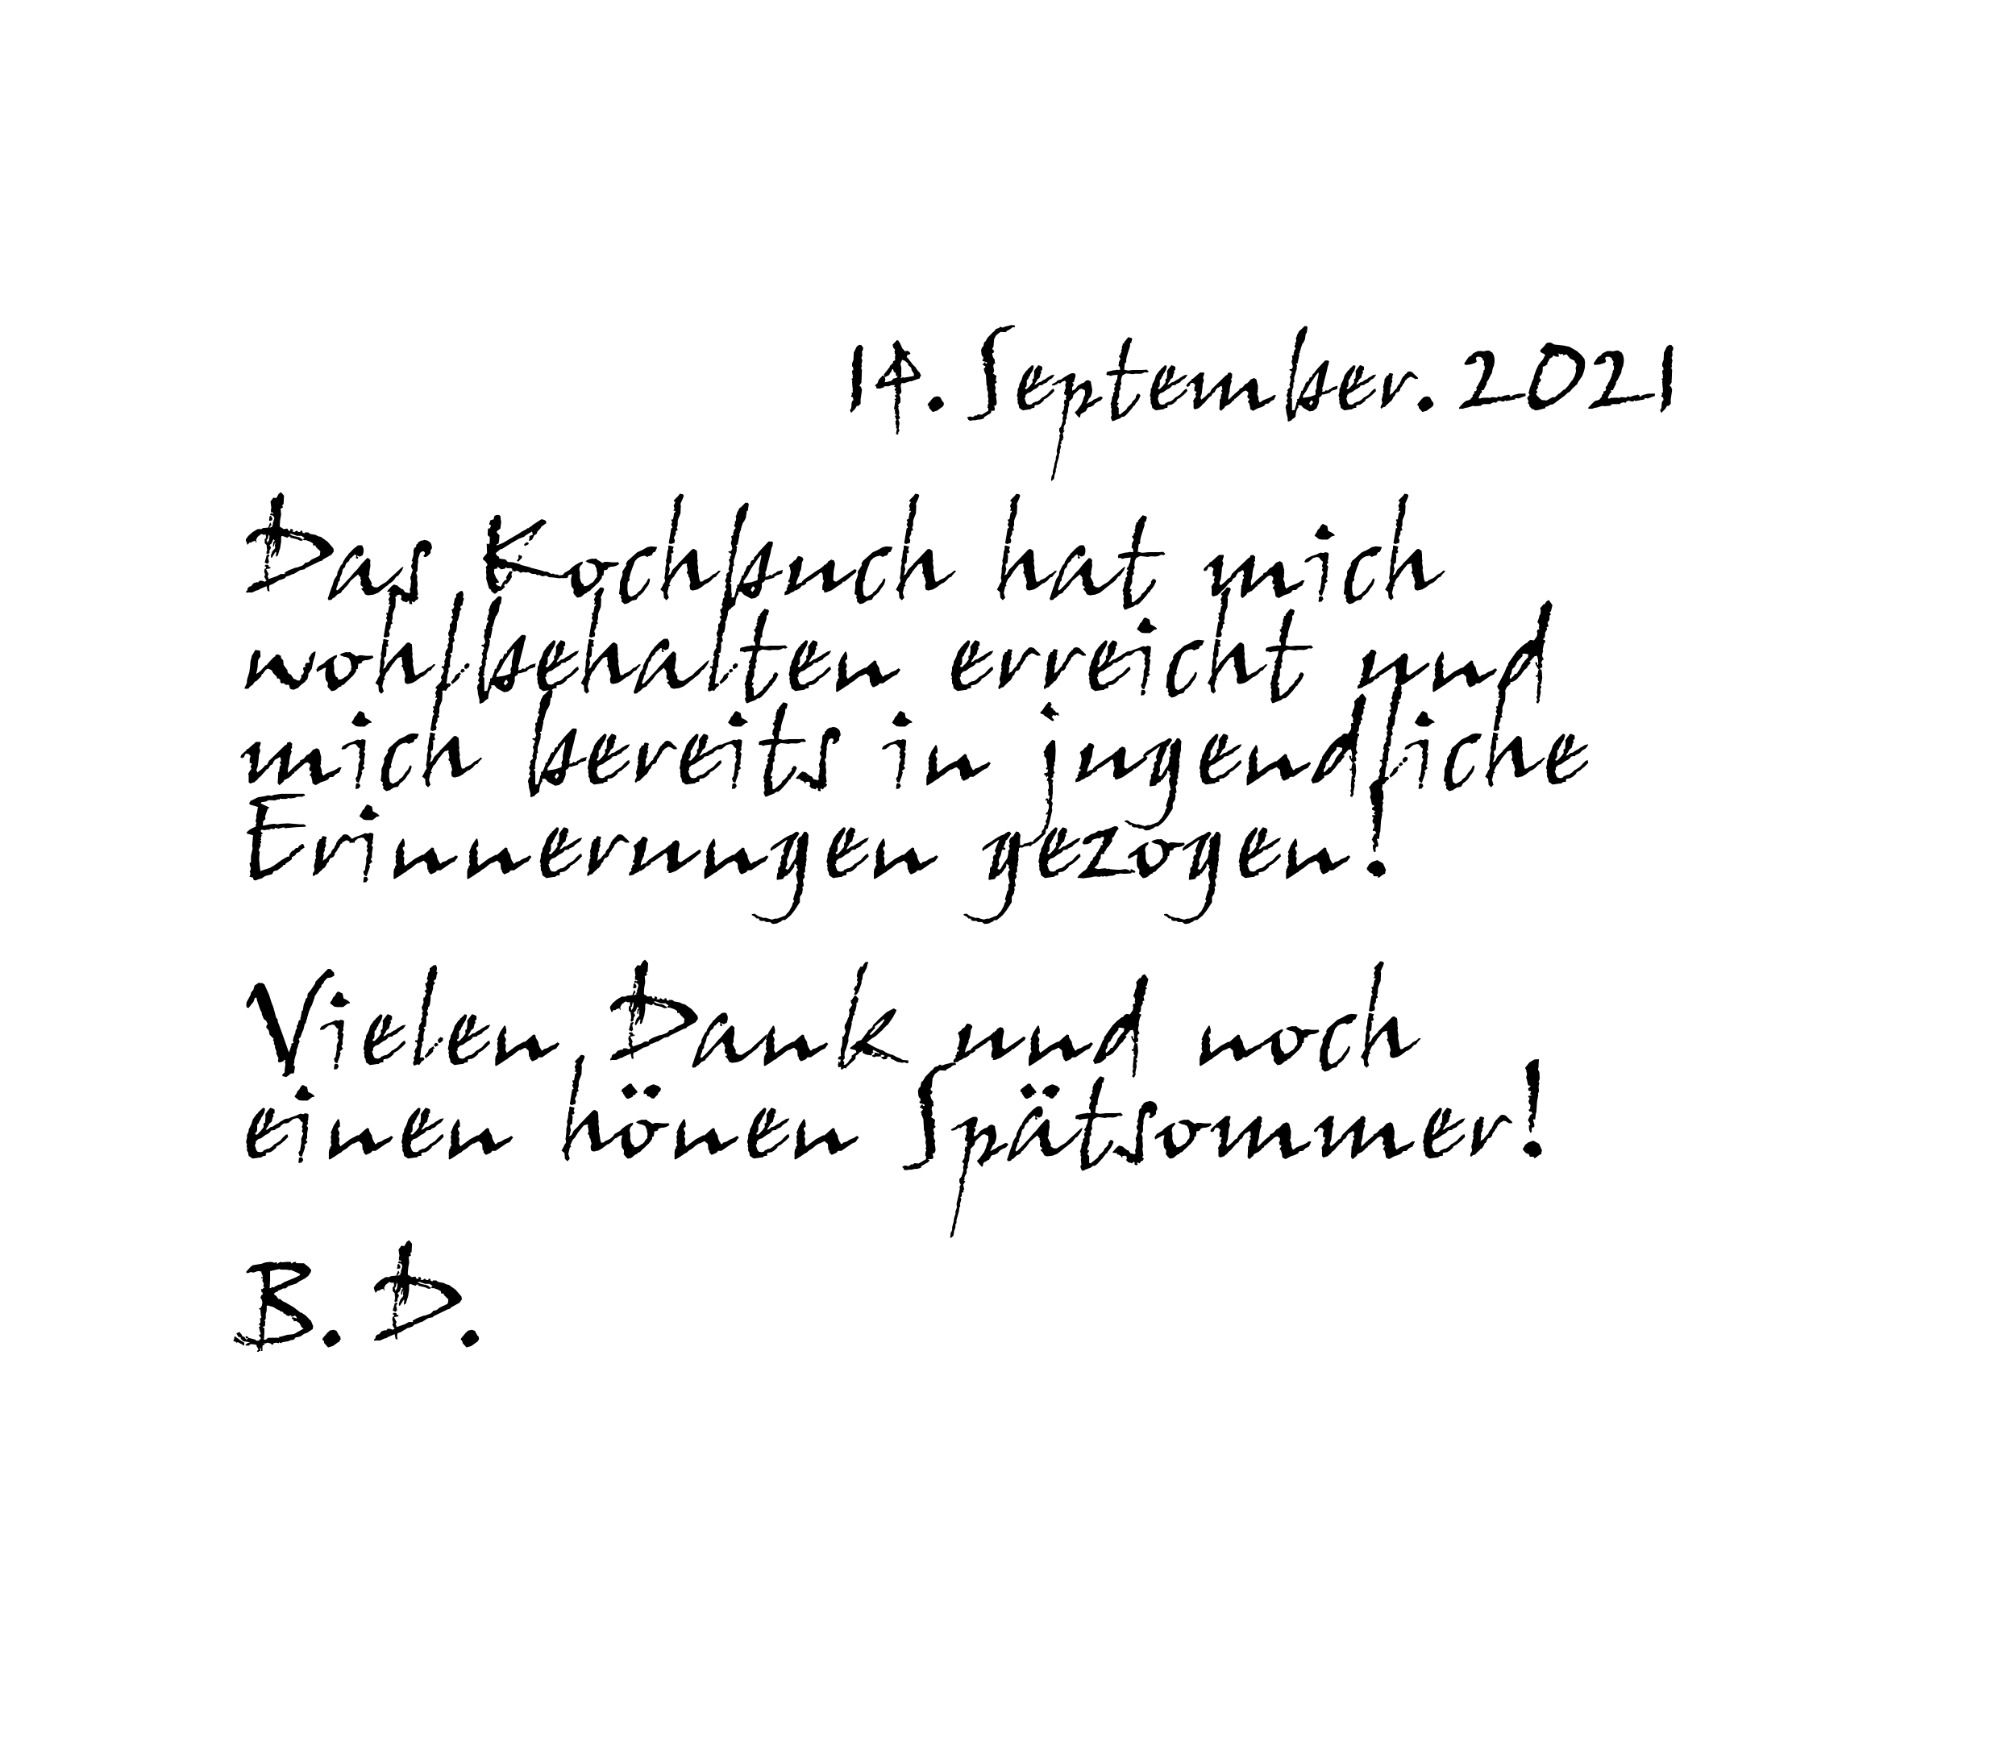 14. September. 2021
Das Kochbuch hat mich
wohlbehalten erreicht und
mich bereits in jugendliche
Erinnerungen gezogen!
Vielen Dank und noch
einen hönen Spätsommer!
B. D.